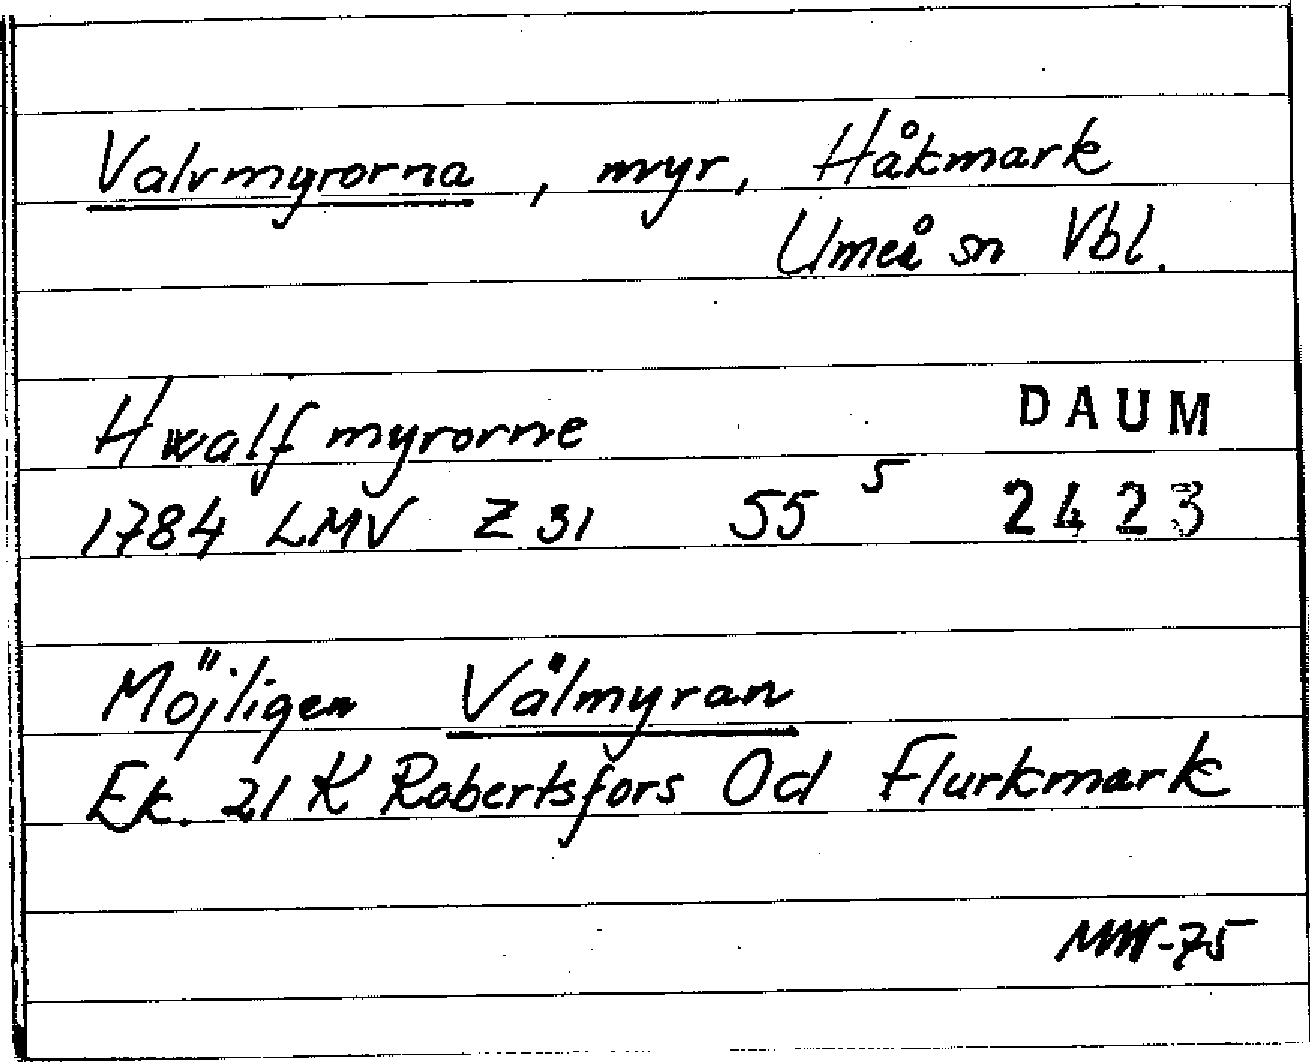 Valvmyrorna, myr, Håkmark
Umeå sn Vbl.
Hwalfmyrorne
DAUM
1784 LMV Z 31 55⁵
2423
Möjligen Välmyran
Ek. 21 K Robertsfors Od Flurkmark
MW-75